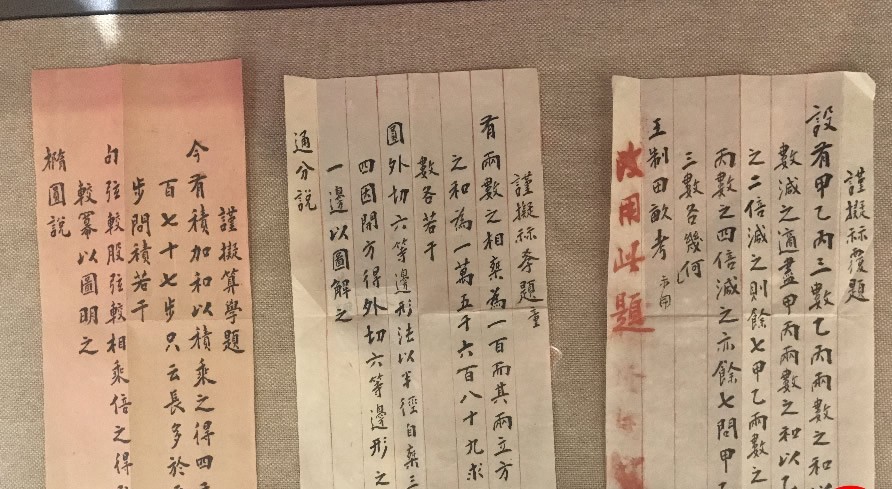 謹擬祘覆題
設有甲乙丙三數乙丙兩數之和以
數減之適盡甲丙兩數之和以乙
之二倍減之則餘七甲乙兩數之
丙數之四倍減之亦餘七問甲
三數各幾何
王制田畝考
改用此題
謹擬祘季題
有兩數之相乘為一百而其兩立方
之和為一萬五千六百八十九求
數各若干
圓外切六等邊形法以半徑自乘三
四因開方得外切六等邊形之
一邊以圖解之
通分說
謹擬算學題
今有積加和以積乘之得四
百七十七步只云長多於
步問積若干
勾弦較股弦較相乘倍之得
較冪以圖明之
橢圓說